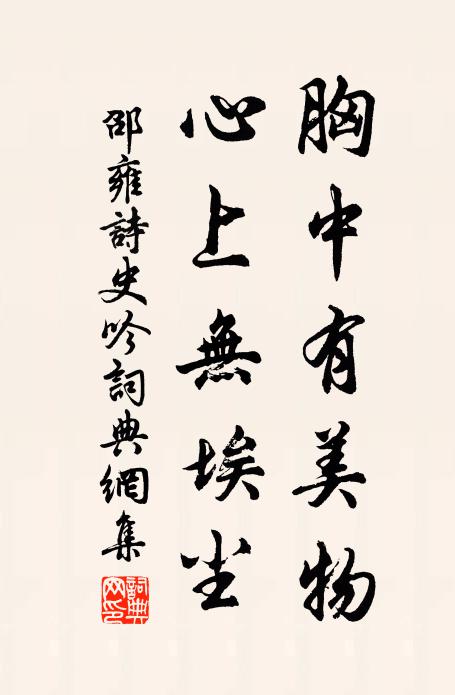 胸中有美物
心上無埃尘
邵雍詩史吟詞典網集
詞典網印